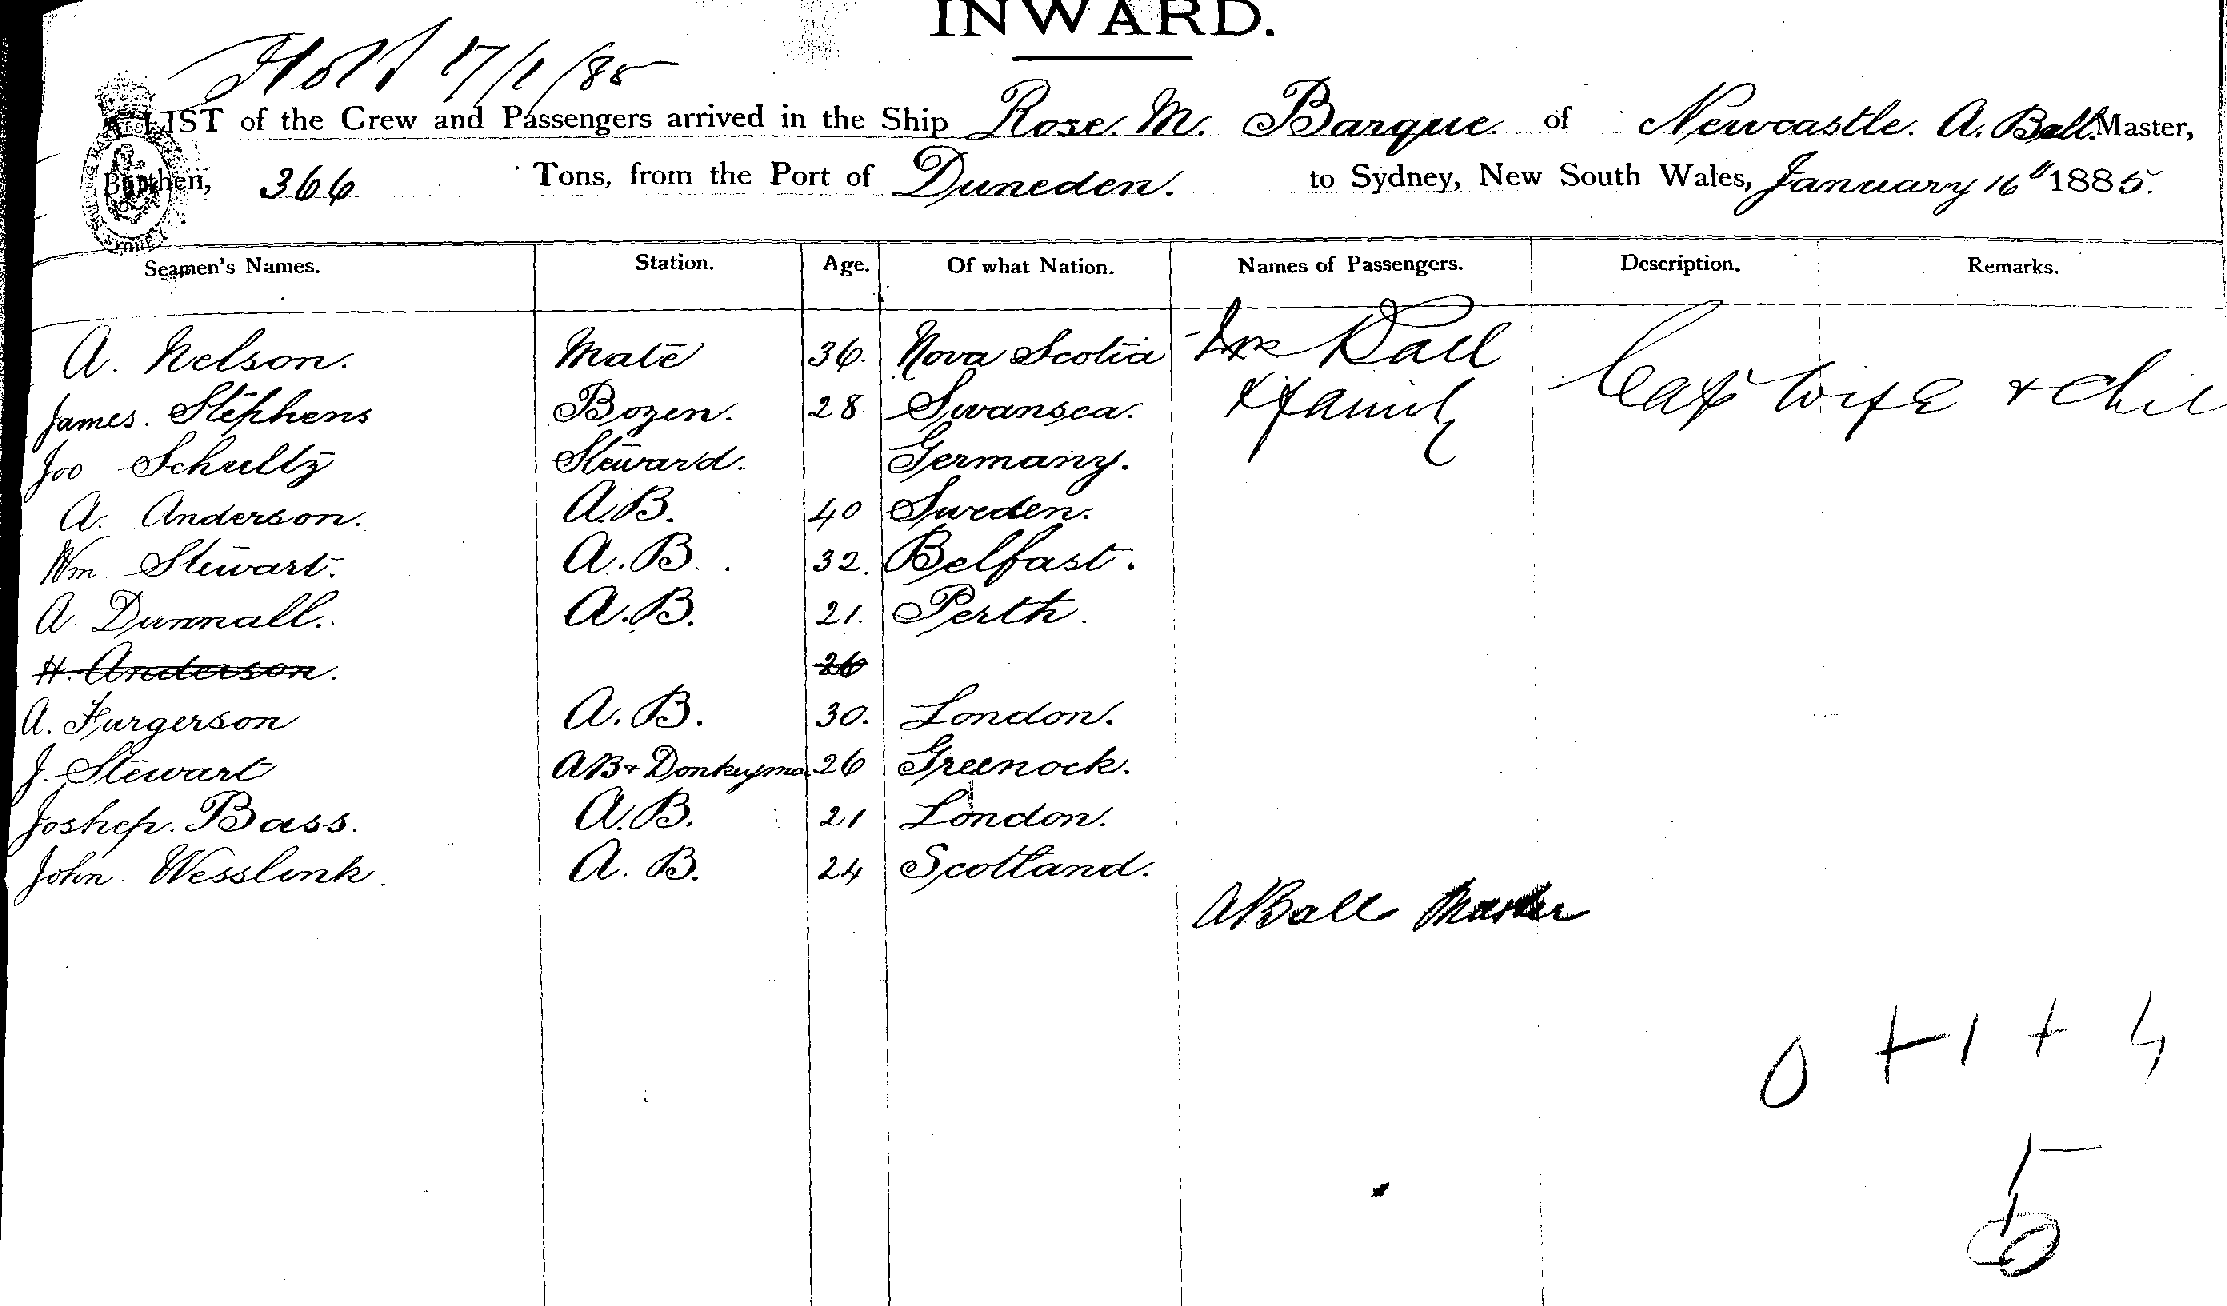 INWARD.
17/1/85
LIST of the Crew and Passengers arrived in the Ship Rose. M. Barque of Newcastle. A. Ball. Master,
Burthen, 366 Tons, from the Port of Duneden. to Sydney, New South Wales, January 16th 1885.
Seamen's Names. Station. Age. Of what Nation. Names of Passengers. Description. Remarks.
A. Nelson. Mate 36. Nova Scotia Mrs Ball
James. Stephens Bozen. 28 Swansea. & family Capt wife & Chil
Joo Schultz Steward. Germany.
A. Anderson. A.B. 40 Sweden.
Wm Stewart. A.B. 32. Belfast.
A Dunnall. A.B. 21. Perth.
H. Anderson. 26
A. Furgerson A.B. 30. London.
J. Stewart AB & Donkeyma 26 Greenock.
Joshep. Bass. A.B. 21 London.
John Wesslink. A.B. 24 Scotland.
A Ball Master
0 + 1 + 4
5